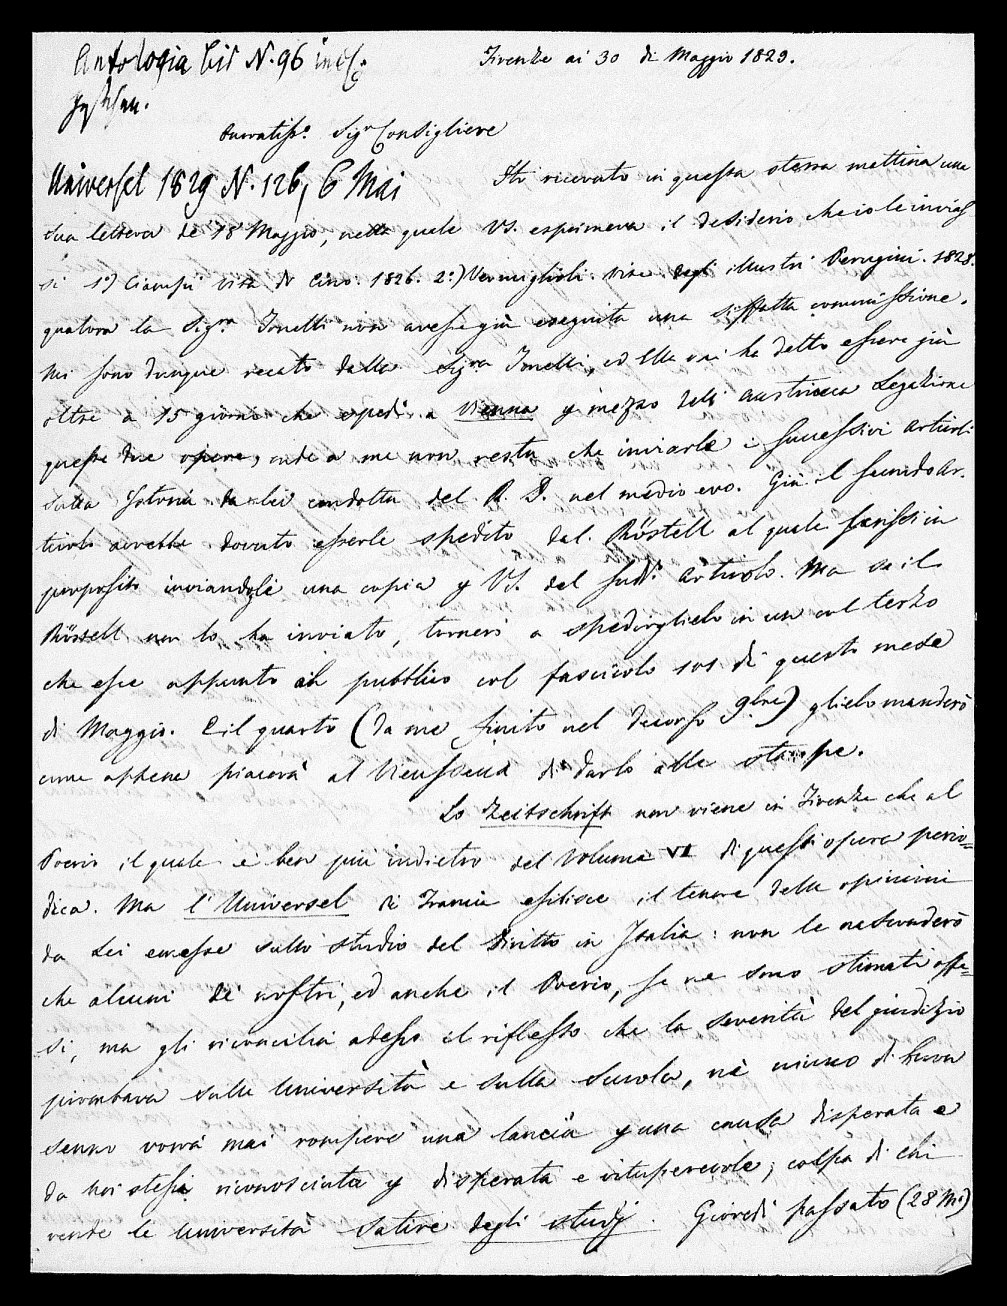 Antologia bis N. 96 incl.
Firenze ai 30 di Maggio 1829.
Sig.r Consigliere
Universel 1829 N. 126, 6 Mai
Ho ricevuto in questa stessa mattina una
sua lettera de' 18 Maggio, nella quale VS. esprimeva il desiderio che io le invias
si 1.o) Ciampi vita di Cino. 1826. 2.o) Vermiglioli. vite degli illustri Perugini. 1828.
qualora la Sig.ra Tonelli non avesse già eseguita una siffatta commissione.
Mi sono dunque recato dalla Sig.ra Tonelli, ed Ella mi ha detto essere già
oltre a 15 giorni che spedì a Vienna p mezzo dell' austriaca Legazione
queste due opere, onde a me non resta che inviarle i successivi articoli
sulla Istoria da lei condotta del D. R. nel medio evo. Già il secondo Ar.
ticolo avrebbe dovuto esserle spedito dal Röstell al quale scrissi in
proposito inviandogli una copia p VS. del sud.o articolo. Ma se il
Röstell non lo ha inviato, tornerò a spedirglielo in un col terzo
che esce appunto al pubblico col fascicolo 101 di questo mese
di Maggio. E il quarto (da me finito nel decorso 9bre) glielo manderò
come appena piacerà al Vieusseux di darlo alle stampe.
Lo Zeitschrift non viene in Firenze che al
Poerio il quale è ben più indietro del Volume VI di quest'opera perio=
dica. Ma l'Universel di Francia esibisce il tenore delle opinioni
da Lei emesse sullo studio del Diritto in Italia: non le nasconderò
che alcuni de' nostri, ed anche il Poerio, se ne sono stimati offe=
si, ma gli riconcilia adesso il riflesso che la severità del giudizio
piombava sulle Università e sulla Scuola, nè niuno di buon
senno vorrà mai rompere una lancia p una causa disperata e
da noi stessi riconosciuta p disperata e vituperevole; colpa di chi
rende le Università Satire degli studj. Giovedì passato (28 M.o)